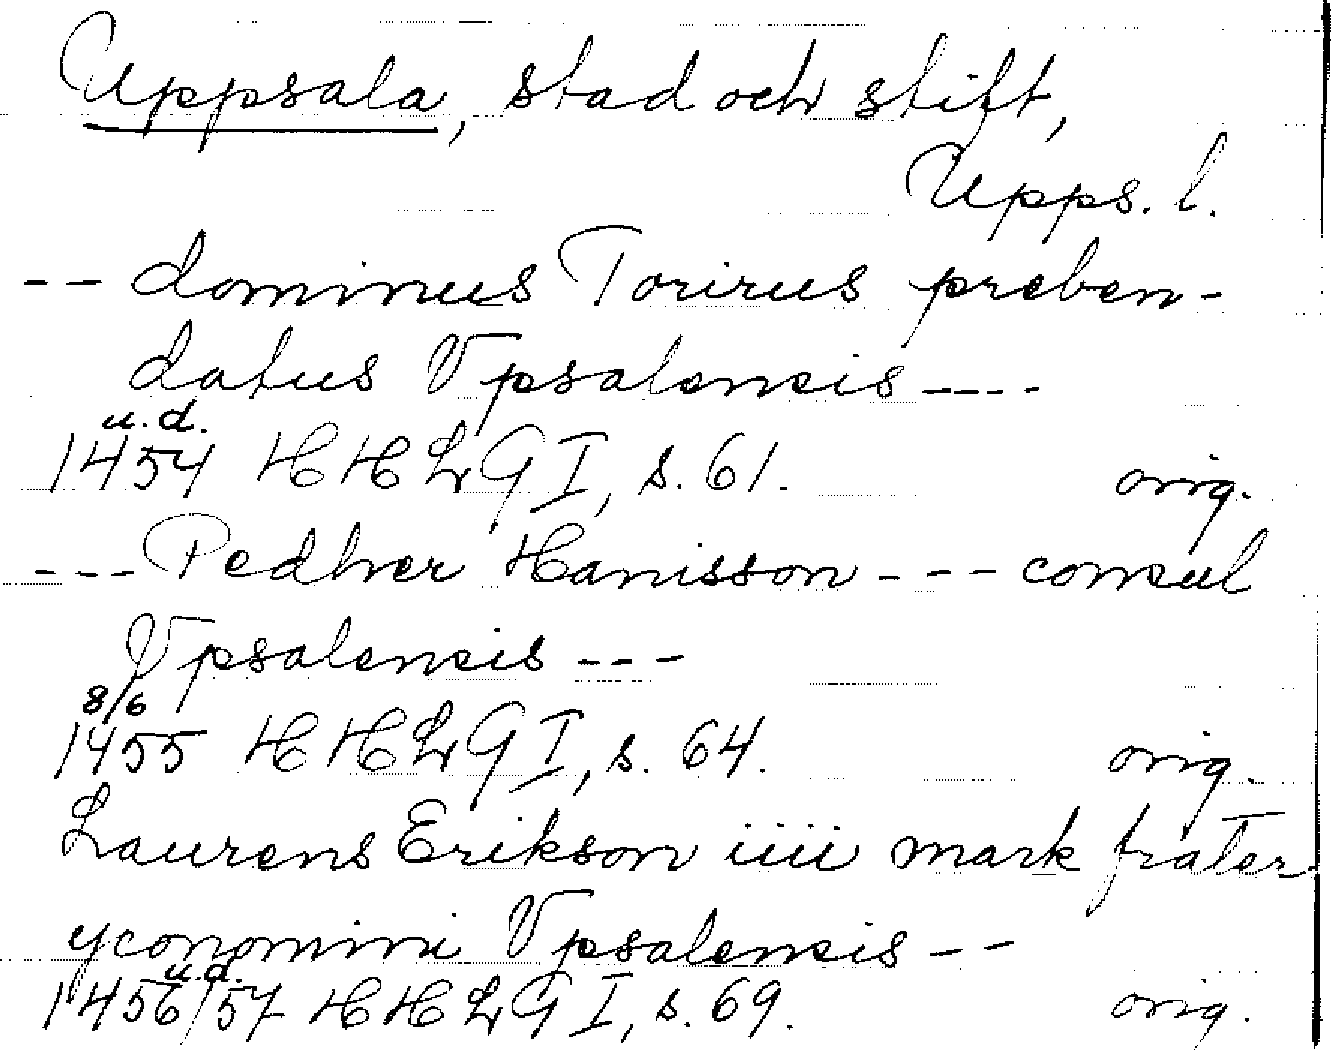 Uppsala, stad och stift,
Upps. l.
-- dominus Torirus preben-
datus Vpsalensis ----
u.d.
1454 HHLG I, s. 61. orig.
--- Pedher Hanisson --- consul
Vpsalensis ---
8/6
1455 HHLG I, s. 64. orig.
Laurens Erikson iiii mark frater
yconomini Vpsalensis --
u.d.
1456/57 HHLG I, s. 69. orig.